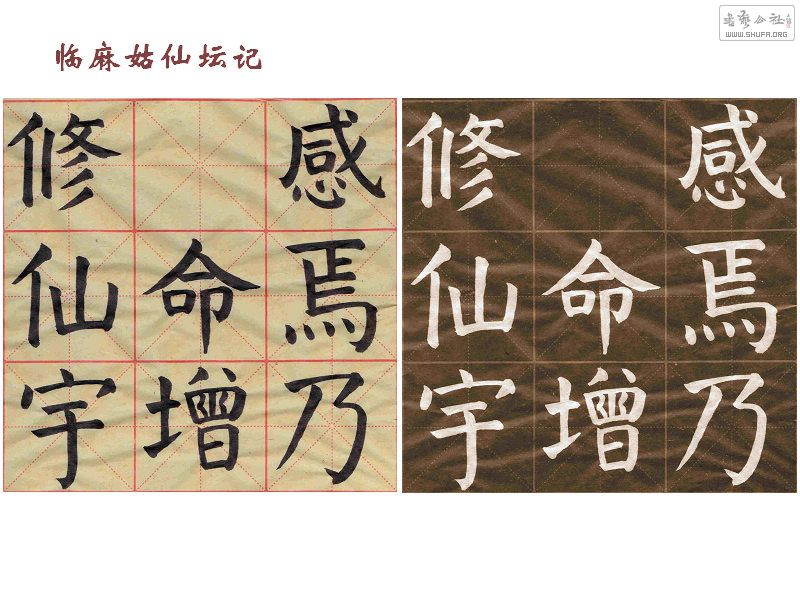 临麻姑仙坛记
書艺公社
WWW.SHUFA.ORG
感焉乃
命增
修仙宇
感焉乃
命增
修仙宇